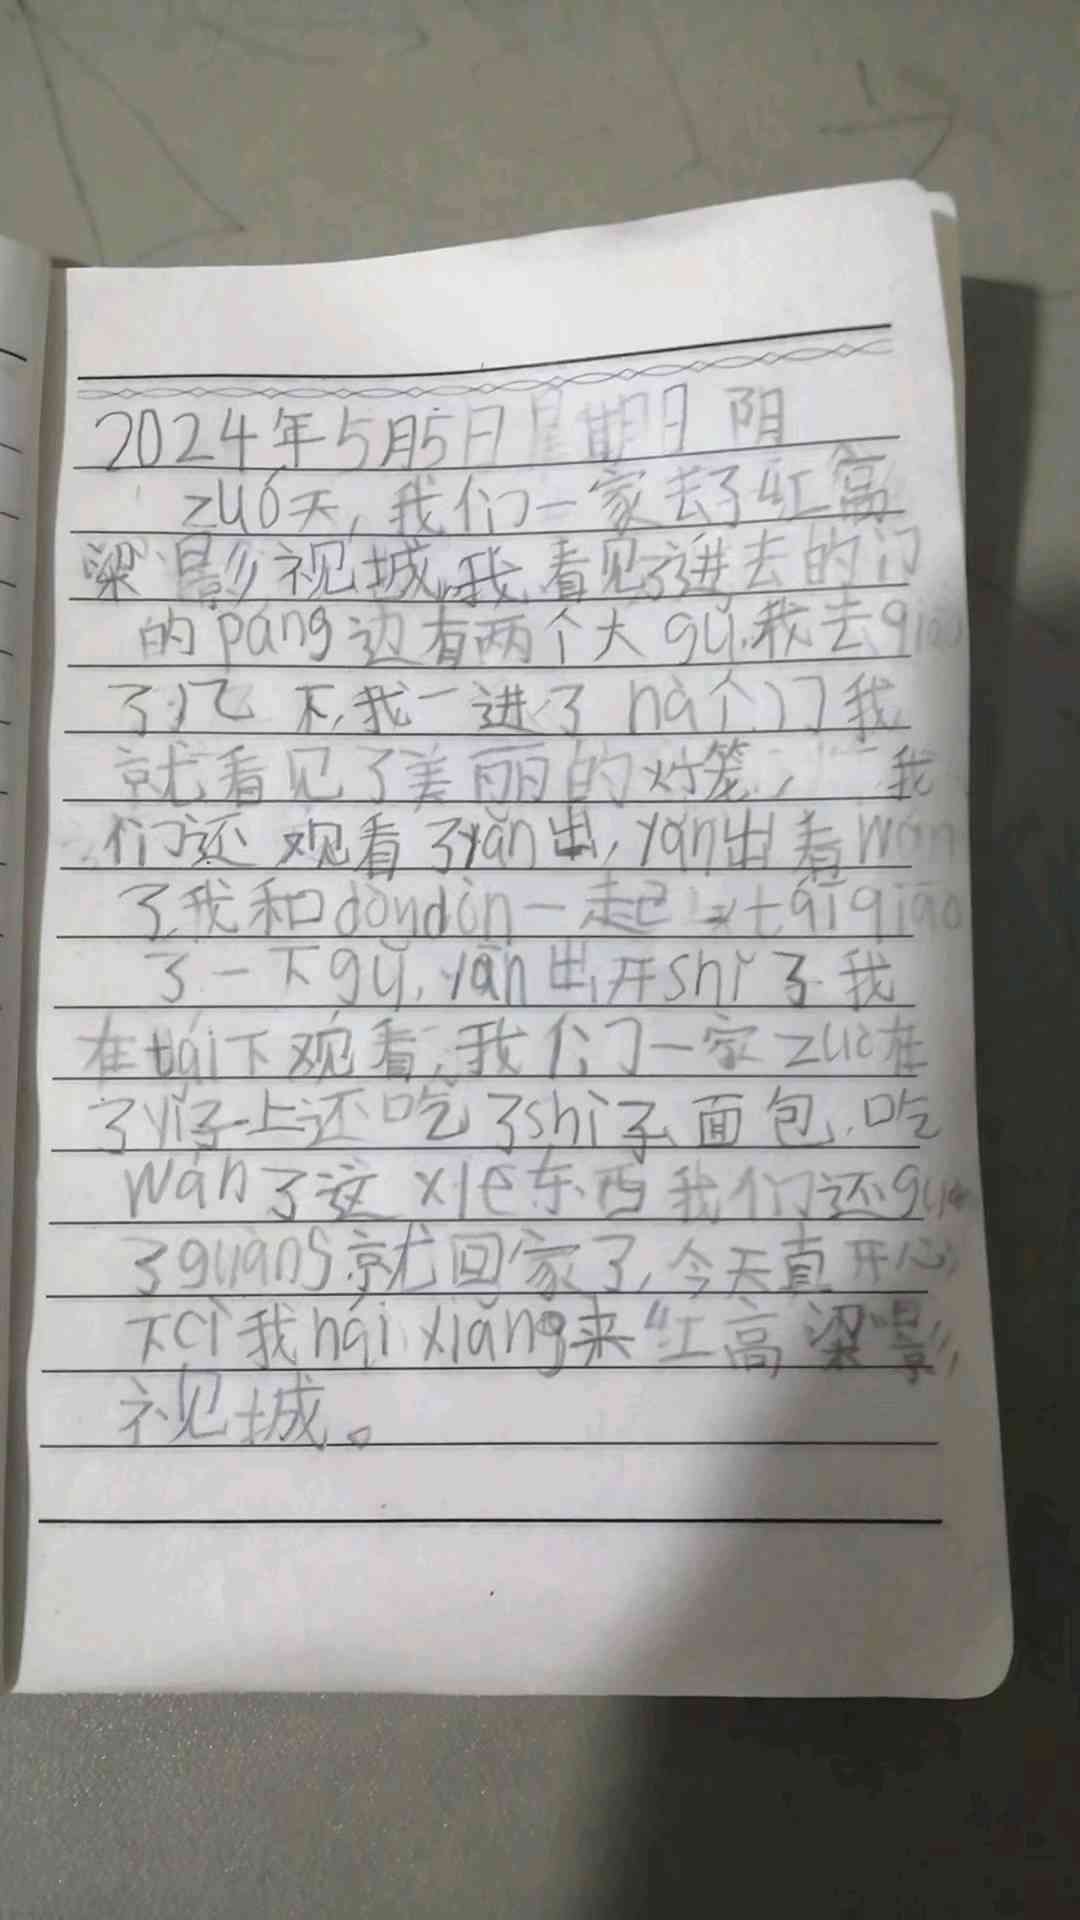 2024年5月5日 星期日 阴
zuó天,我们一家去了红高
梁影视城,我看见了进去的门
的páng边有两个大gǔ,我去qiāo
了几下,我一进了nà个门我
就看见了美丽的灯笼,我
们还观看了yǎn出,yǎn出看wán
了,我和dòndòn一起上tái qiāo
了一下gǔ,yǎn出开shǐ了我
在tái下观看,我们一家zuò在
了yǐ子上还吃了shì子面包,吃
wán了这xiē东西我们还
了guàng就回家了,今天真开心
下cì我hái xiǎng来“红高梁影
视城。